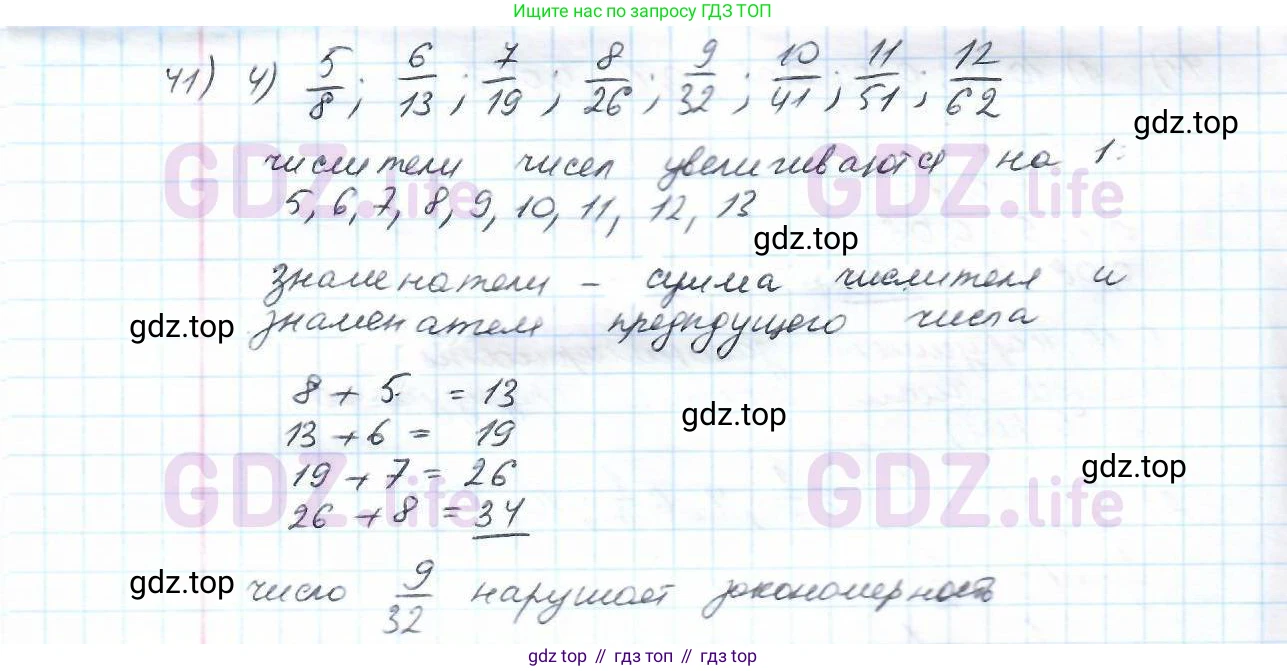 Ищите нас по запросу ГДЗ ТОП
41) 4) 5/8; 6/13; 7/19; 8/26; 9/32; 10/41; 11/51; 12/62
gdz.top
числители чисел увеличиваются на 1:
GDZ.life GDZ.life
5, 6, 7, 8, 9, 10, 11, 12, 13
gdz.top
знаменатели – сумма числителя и
gdz.top
знаменателя предыдущего числа
8 + 5 = 13
gdz.top
13 + 6 = 19
19 + 7 = 26
gdz.top
GDZ.life GDZ.life
26 + 8 = 34
gdz.top
число 9/32 нарушает закономерность
gdz топ // гдз топ // gdz top